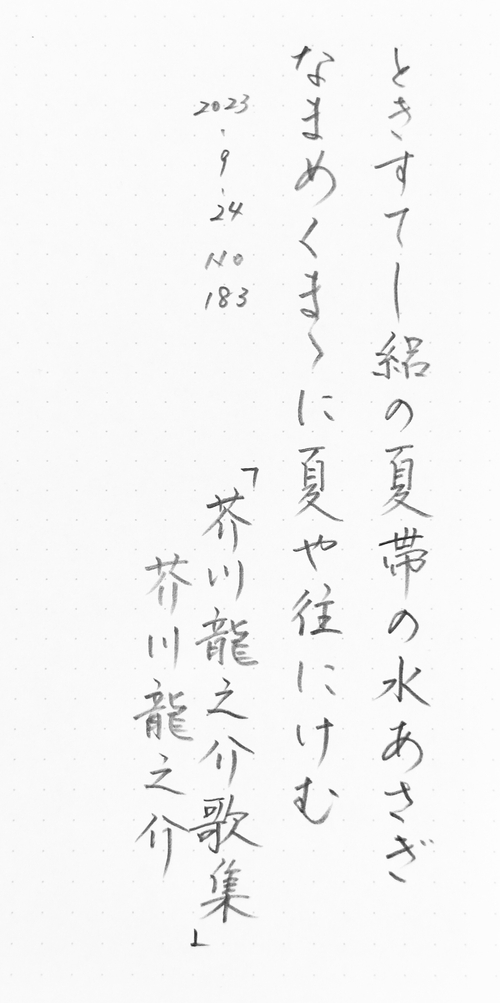 ときすてし絽の夏帯の水あさぎ
なまめくまゝに夏や往にけむ
2023.9.24 No 183
「芥川龍之介歌集」
芥川龍之介